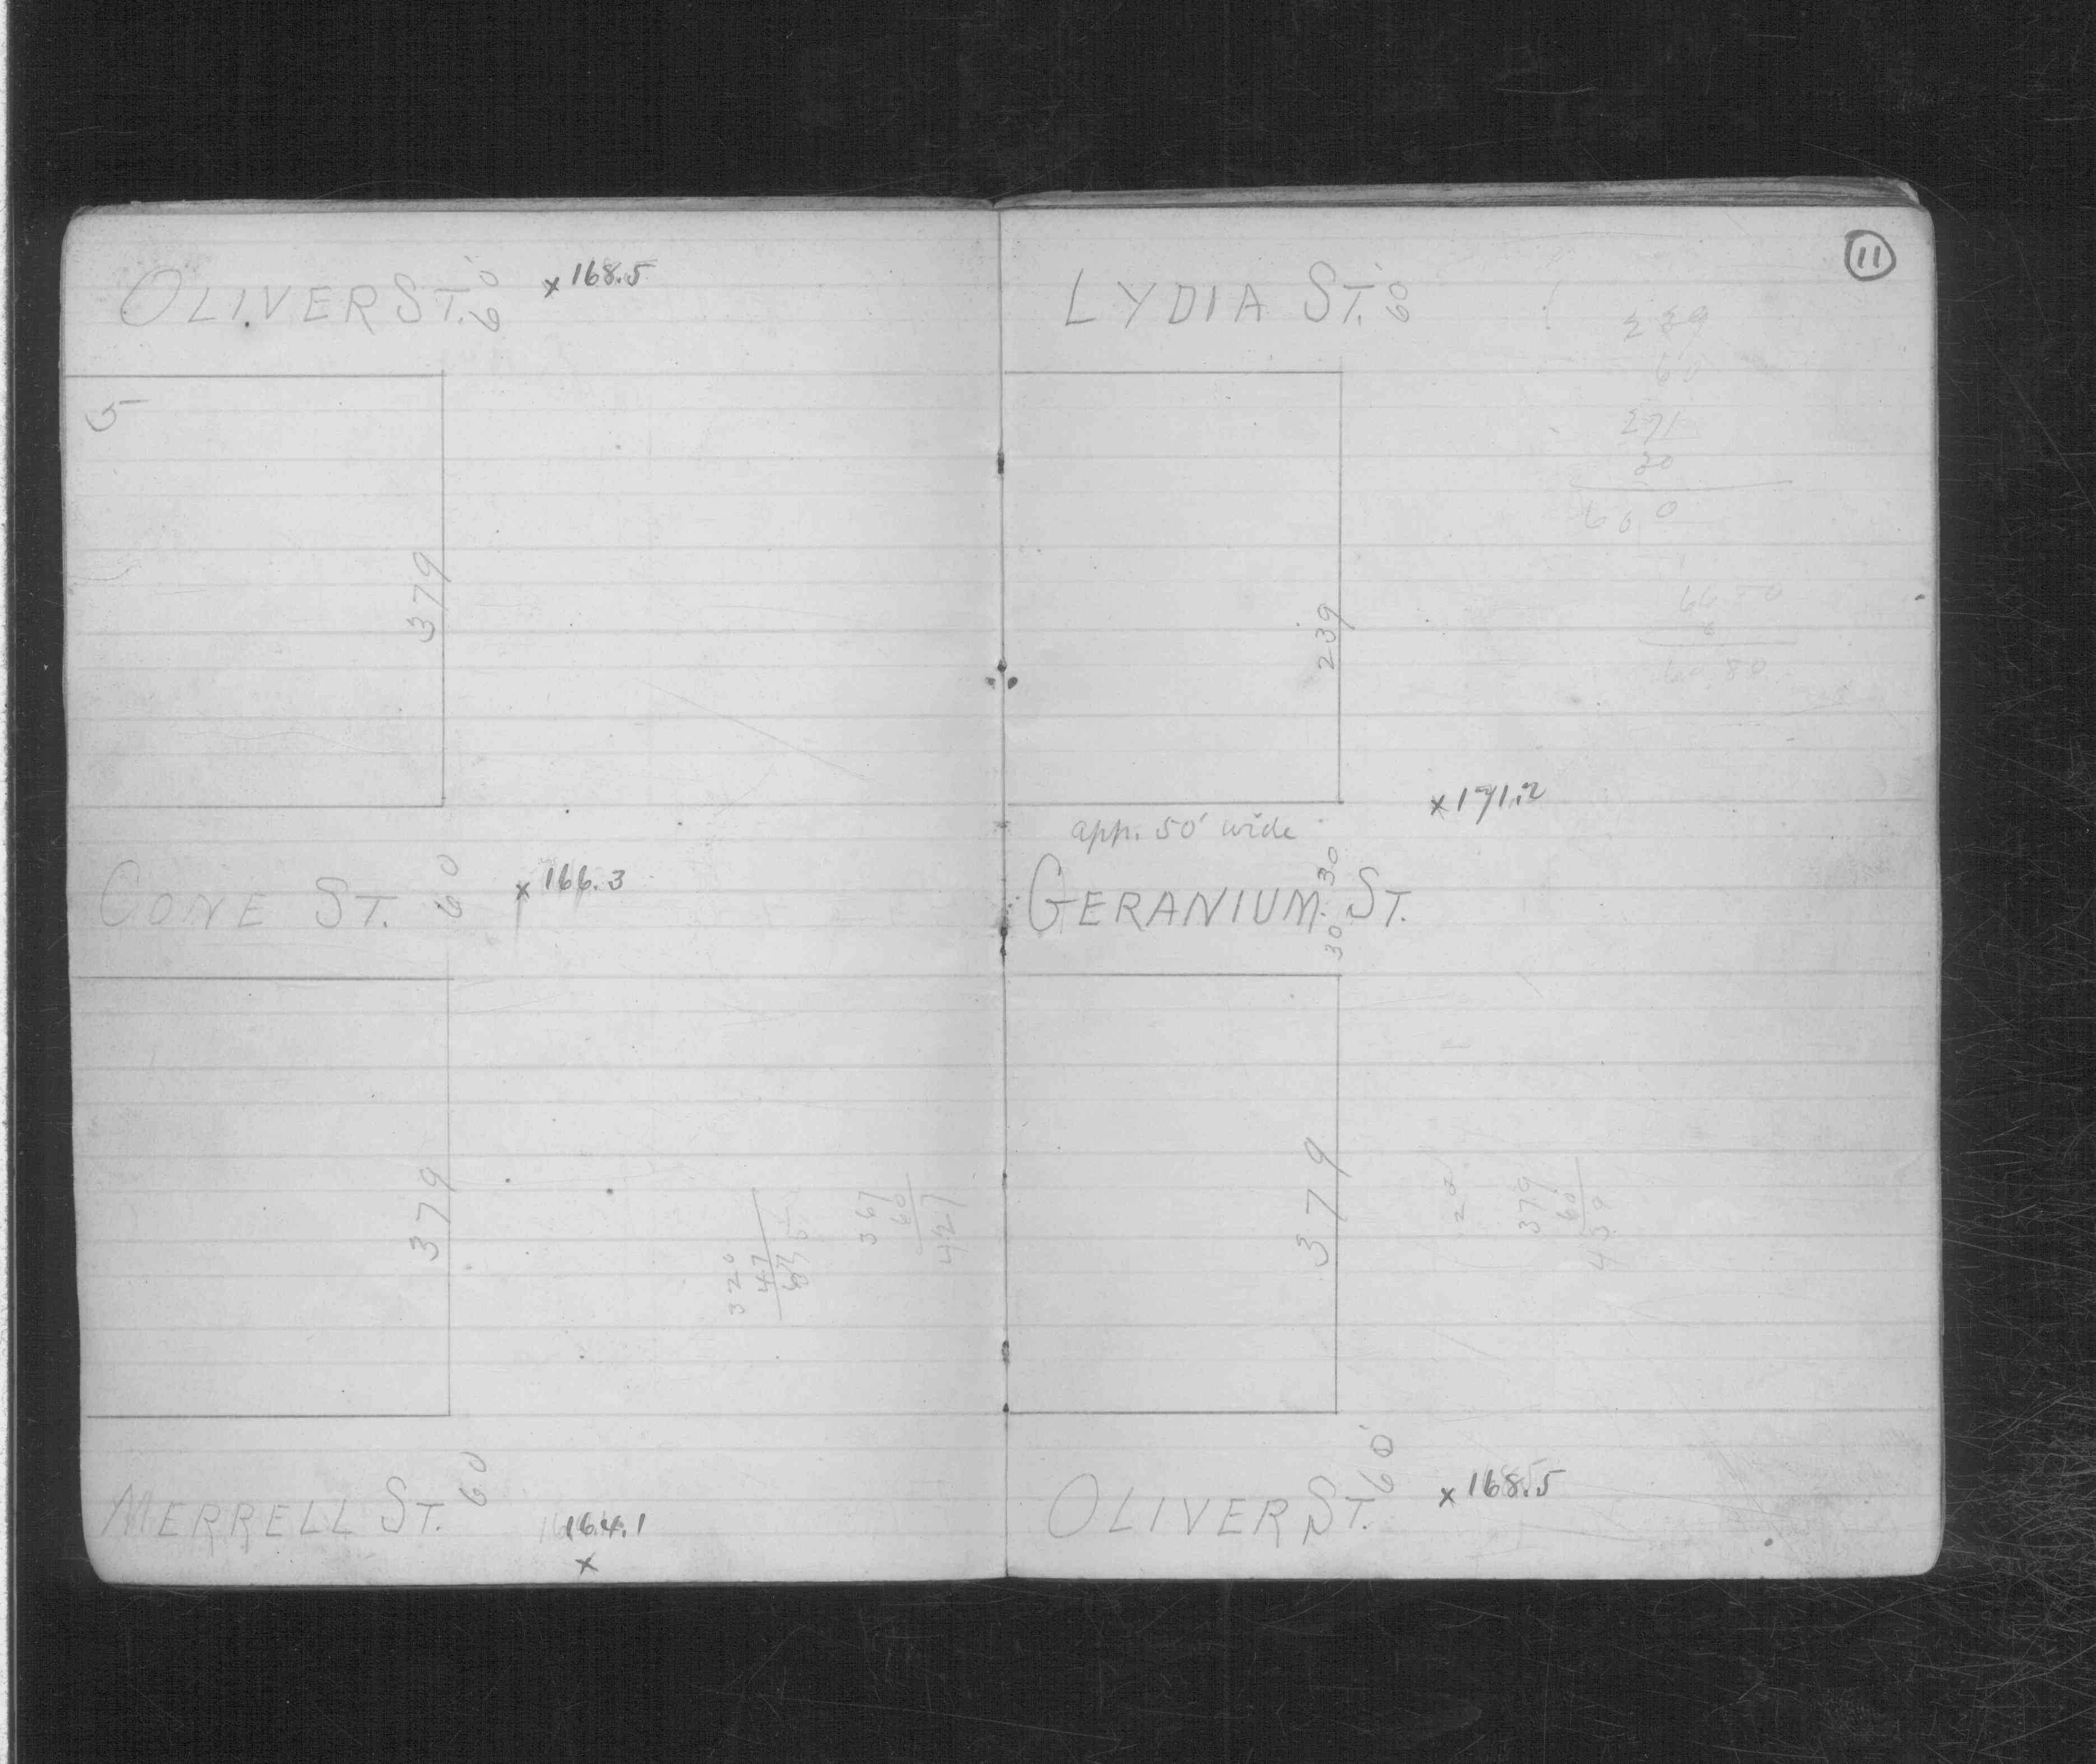 OLIVER ST. 60'
x 168.5
5
379
CONE ST. 60
x 166.3
379
320
47
367
60
427
MERRELL ST. 60
164.1
x
11
LYDIA ST. 60'
239
60
271
30
600
239
x 171.2
app. 50' wide
GERANIUM ST.
30
30
379
379
60
439
OLIVER ST. 60'
x 168.5